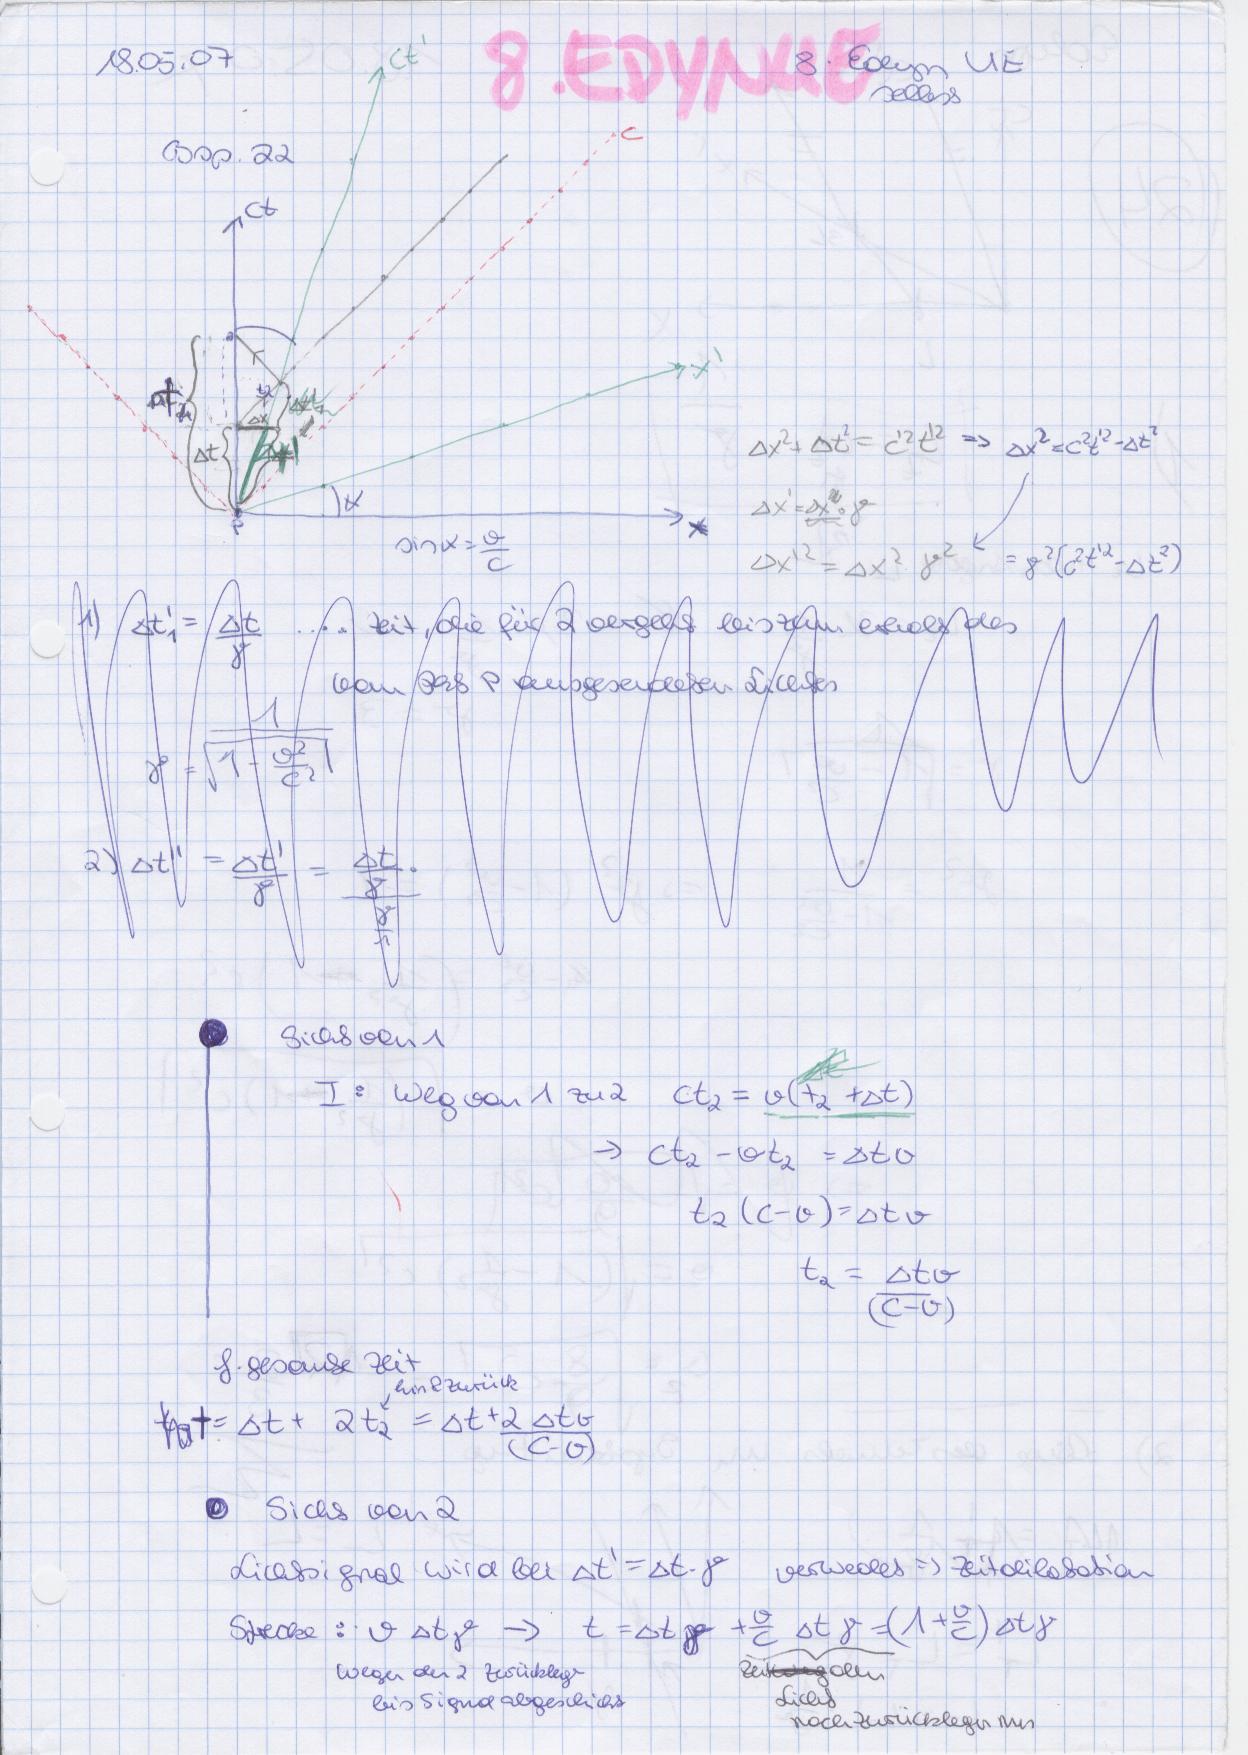 18.05.07
8. EDYNUE
8. Edyn UE
selbst
Bsp. 22
ct'
c
ct
x'
Δx
Δt
t2
α
P
x
sin α = v/c
Δx² + Δt² = c²t'² => Δx² = c²t'² - Δt²
Δx' = Δx · γ
Δx'² = Δx² γ² = γ²(c²t'² - Δt²)
1) Δt'₁ = Δt/γ .... Zeit, die für 2 vergeht bis zum erhalt des
von P ausgesendeten Lichtes
γ = 1/√(1 - v²/c²)
2) Δt'' = Δt'/γ = Δt/γ
Sicht von 1
I: Weg von 1 zu 2 ct₂ = v(t₂ + Δt)
→ ct₂ - vt₂ = Δt v
t₂ (c - v) = Δt v
t₂ = Δt v/(c - v)
f. gesamte Zeit
hin & zurück
t = Δt + 2t₂ = Δt + 2 Δt v/(c - v)
Sicht von 2
Lichtsignal wird bei Δt' = Δt · γ => Zeitdilatation
Strecke: v Δt γ → t = Δt γ + v/c Δt γ = (1 + v/c) Δt γ
Weg den 2 zurücklegt
bis Signal abgeschickt
Licht
noch zurücklegen muss